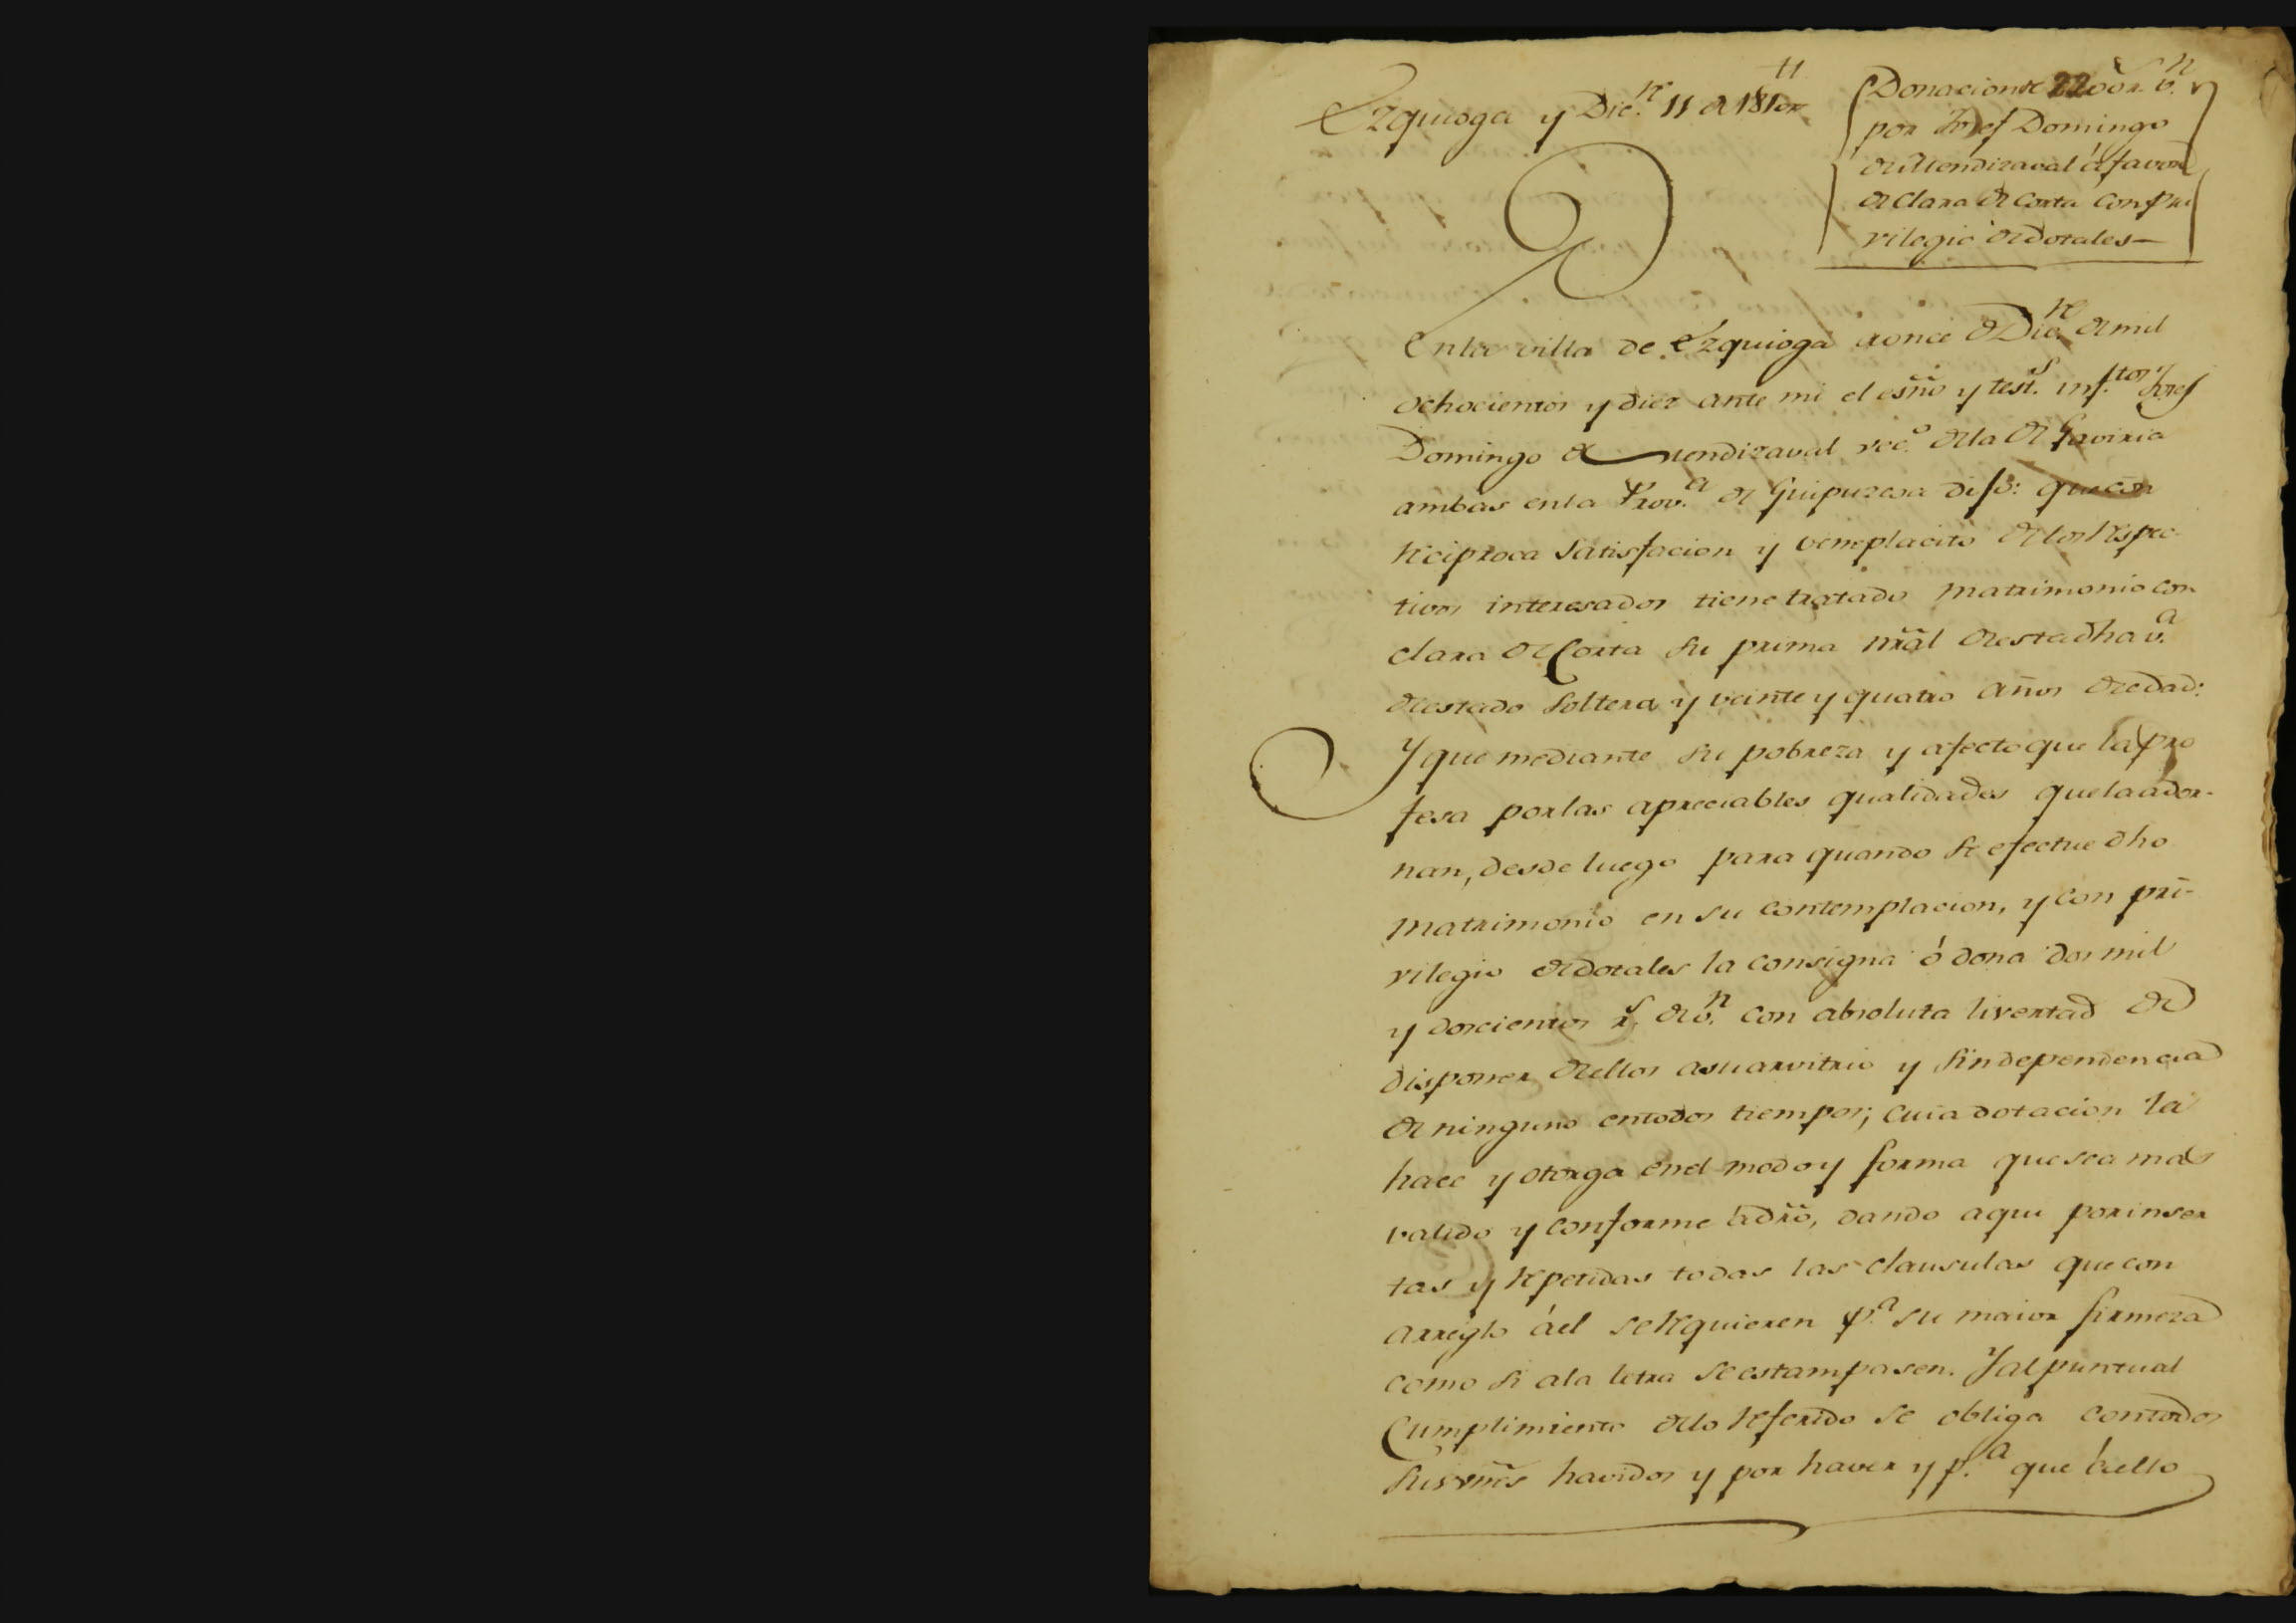 Ezquioga y Dic.re 11 de 1810
Donacion de 2200 r.s v.n
por Josef Domingo
de Mendizaval á favor
de Clara de Corta con pri
vilegio de dotales—
En la villa de Ezquioga a once de Dic.re de mil
ochocientos y diez ante mi el esño y test.s inf.tos Josef
Domingo de Mendizaval vec.o de la de Gaviria
ambas en la Prov.a de Guipuzcoa dijo: que con
reciproca satisfacion y veneplacito de los respec-
tivos interesados tiene tratado matrimonio con
Clara de Corta su prima nrãl de esta dha v.a
de estado soltera y veinte y quatro años de edad:
Y que mediante su pobreza y afecto que la pro
fesa por las apreciables qualidades que la ador-
nan, desde luego para quando se efectue dho
matrimonio en su contemplacion, y con pri-
vilegio de dotales la consigna ó dona dos mil
y doscientos r.s de v.n con absoluta livertad de
disponer de ellos a su arvitrio y sin dependencia
de ninguno en todos tiempos; cuia dotacion la
hace y otorga en el modo y forma que sea mas
valido y conforme a drõ, dando aqui por inser
tas y repetidas todas las clausulas que con
arreglo á el se requieren p.a su maior firmeza
como si a la letra se estampasen. Y al puntual
Cumplimiento de lo referido se obliga con todos
sus vnes havidos y por haver y p.a que á ello